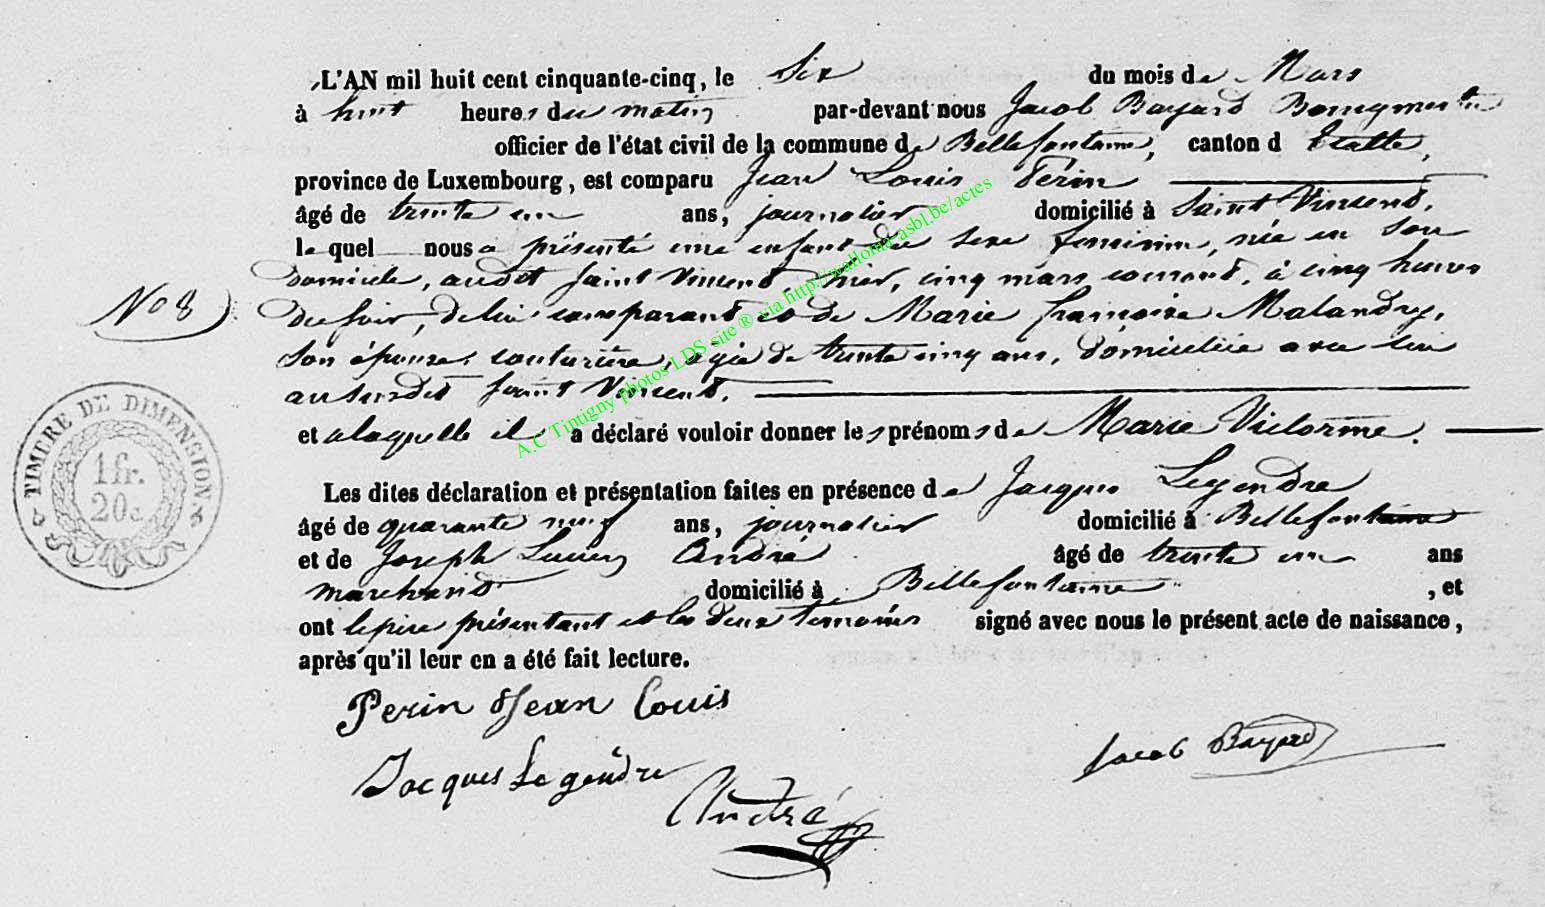 L'AN mil huit cent cinquante-cinq, le Six du mois de Mars
à huit heures du matin par-devant nous Jacob Bayard Bourgmestre
officier de l'état civil de la commune de Bellefontaine, canton d'Etalle,
province de Luxembourg, est comparu Jean Louis Périn
âgé de trente un ans, journalier domicilié à Saint Vincent,
lequel nous a présenté une enfant du sexe féminin, née en son
domicile, audit Saint Vincent, hier, cinq mars courant, à cinq heures
No 8
du soir, de lui comparant et de Marie françoise Malandry,
son épouse, couturière, agée de trente cinq ans, domiciliée avec lui
au susdit Saint Vincent.
et a laquelle il a déclaré vouloir donner les prénoms de Marie Victorine.
Les dites déclaration et présentation faites en présence de Jacques Legendre
âgé de quarante neuf ans, journalier domicilié à Bellefontaine
et de Joseph Lucien André âgé de trente un ans
marchand domicilié à Bellefontaine, et
ont le père présentant et les deux témoins signé avec nous le présent acte de naissance,
après qu'il leur en a été fait lecture.
Perin Jean Louis
Jacob Bayard
Jacques Legendre
André
TIMBRE DE DIMENSION
1fr.
20c
A.C Tintigny photos LDS site ® via http://wallonia-asbl.be/actes